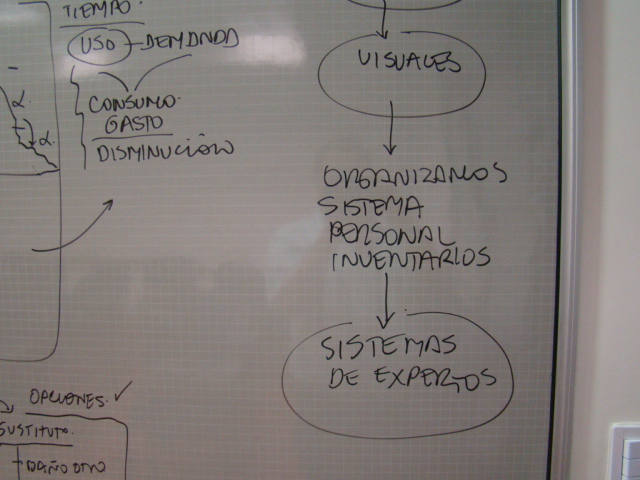 TIEMPO.
USO - DEMANDA
CONSUMO.
GASTO
DISMINUCIÓN
α.
α.
VISUALES
ORGANIZARLOS
SISTEMA
PERSONAL
INVENTARIOS
SISTEMAS
DE EXPERTOS
OPCIONES. ✓
SUSTITUTO.
DAÑO OTRO